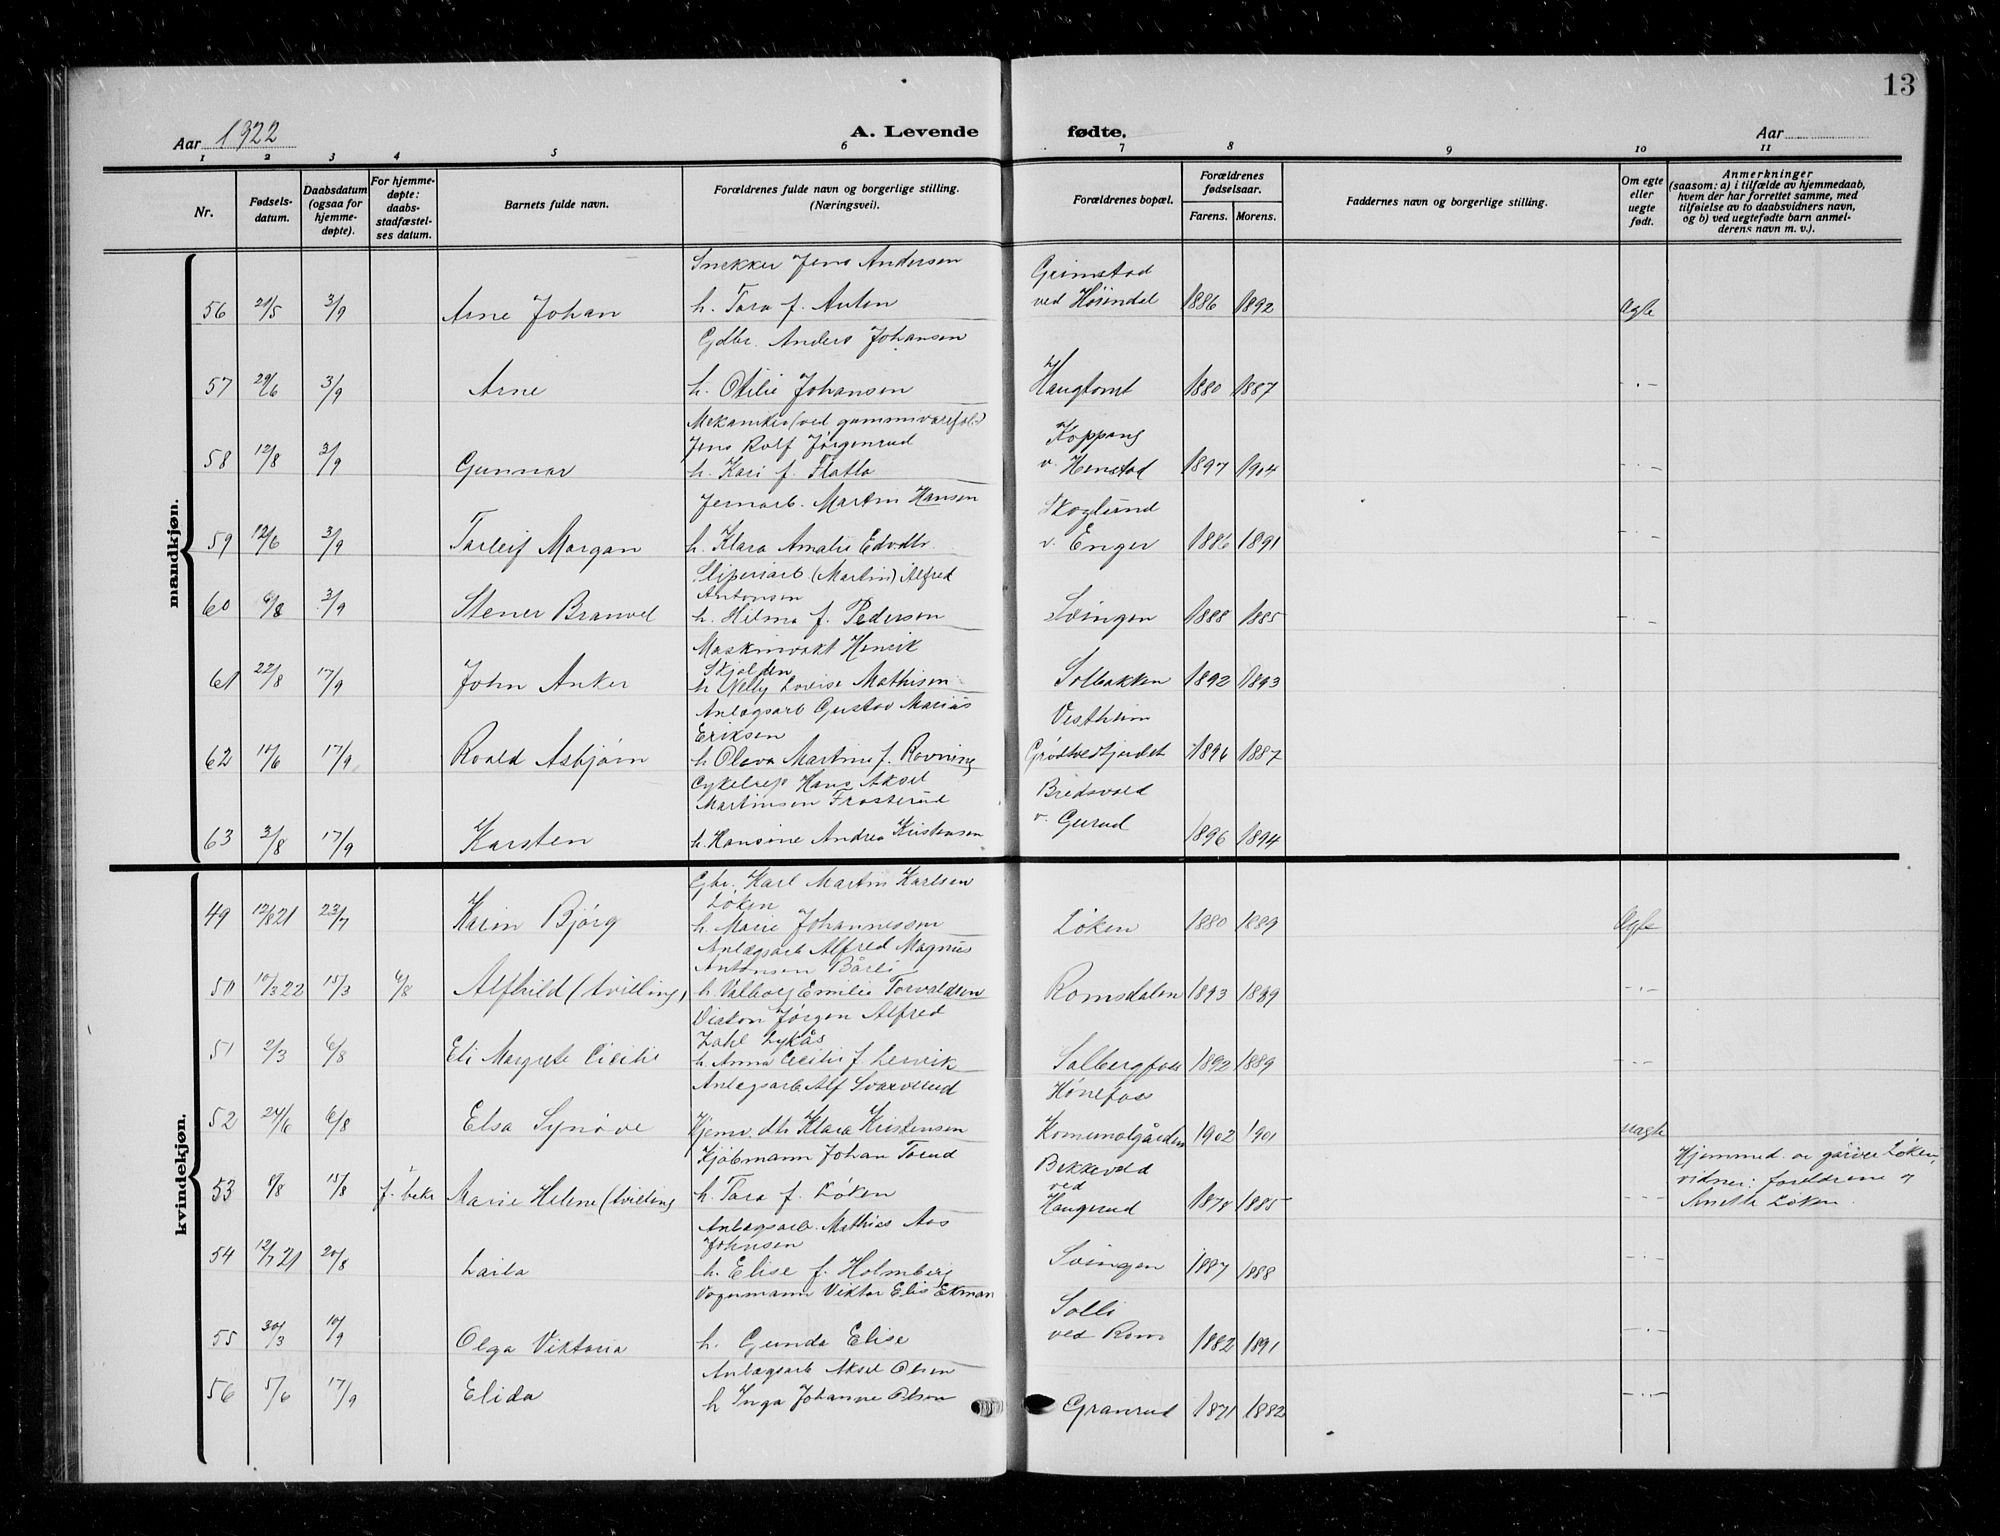 13
Aar 1922
A. Levende fødte.
Aar
1 2 3 4 5 6 7 8 9 10 11
Nr.
Fødsels-
datum.
Daabsdatum
(ogsaa for
hjemme-
døpte).
For hjemme-
døpte:
daabs-
stadfæstel-
ses datum.
Barnets fulde navn.
Forældrenes fulde navn og borgerlige stilling.
(Næringsvei).
Forældrenes bopæl.
Forældrenes
fødselsaar.
Farens. Morens.
Faddernes navn og borgerlige stilling.
Om egte
eller
uegte
født.
Anmerkninger
(saasom: a) i tilfælde av hjemmedaab,
hvem der har forrettet samme, med
tilføielse av to daabsvidners navn,
og b) ved uegtefødte barn anmel-
derens navn m. v.).
mandkjøn.
Snekker Jens Andersen Grimstad
56 21/5 3/9 Arne Johan h. Tora f. Anton ved 1886 1892 Ægte
Gdbr. Anders Johansen
57 29/6 3/9 Arne h. Otilie Johansen Haugtomt 1880 1887 -.-
Mekaniker (ved
Jens Rolf Jørgenrud Koppang
58 12/8 3/9 Gunnar h. Kari f. Flatla v. Henstad 1897 1904 -.-
Jernarb. Martin Hansen Skoglund
59 12/6 3/9 Torleif Morgan h. Klara Amalie Edvdtr. v. Enger 1886 1891 -.-
Sliperiarb (Martin) Alfred
Antonsen
60 6/8 3/9 Stener Branvel h. Hilma f. Pedersen Svingen 1888 1885 -.-
Maskinvakt Henrik
Skjolden
61 22/8 17/9 John Anker h. Nelly Lovise Mathisen Solbakken 1892 1893
Anlægsarb Gustav Marius Vestheim
Eriksen
62 14/6 17/9 Roald Asbjørn h. Olava Martine f. Rovning 1896 1887
Cykelrep Hans Aksel Bredsvold
Martinsen Frosterud
63 3/8 17/9 Karsten h. Hansine Andrea Kristensen v. Gurud 1896 1894
kvindekjøn.
Gbr. Karl Martin Karlsen
Løken
49 12/8 21 23/7 Karin Bjørg h. Marie Johannessen Løken 1880 1889 Ægte
Anlægsarb Alfred Magnus
Antonsen Bårli
50 10/3 22 15/3 6/8 Alfhild (tvilling) h. Valborg Emilie Torvaldsen Romsdalen 1893 1899 -.-
Diakon Jørgen Alfred
Zahl Lykås
51 2/3 6/8 Eli Margrete Cicilie h. Anna Cecilie f. Lervik Solbergfoss 1892 1889 -.-
Anlægsarb Alf Svarverud Hønefoss
52 24/6 6/8 Elsa Synøve Hjemv. dtr Klara Kristensen Komunalgården 1902 1901 uægte
Kjøbmann Johan Torud Bekkevold
ved
53 8/8 15/8 f. bekr Marie Helene (tvilling) h. Tora f. Løken Haugerud 1878 1885 -.-
Hjemmed. av gårver Løken,
vidner: foreldrene og
Løken.
Anlægsarb. Mathias Aas
Johnsen
54 12/7 21 20/8 Laila h. Elise f. Holmberg Svingen 1887 1888 -.-
Vognmann Viktor Elis Ekman Solli
55 30/3 10/9 Olga Viktoria h. Gunda Elise ved Rom 1882 1891 -.-
Anlægsarb Aksel Olsen
56 5/6 17/9 Elida h Inga Johanne Olsen Granrud 1871 1882 -.-